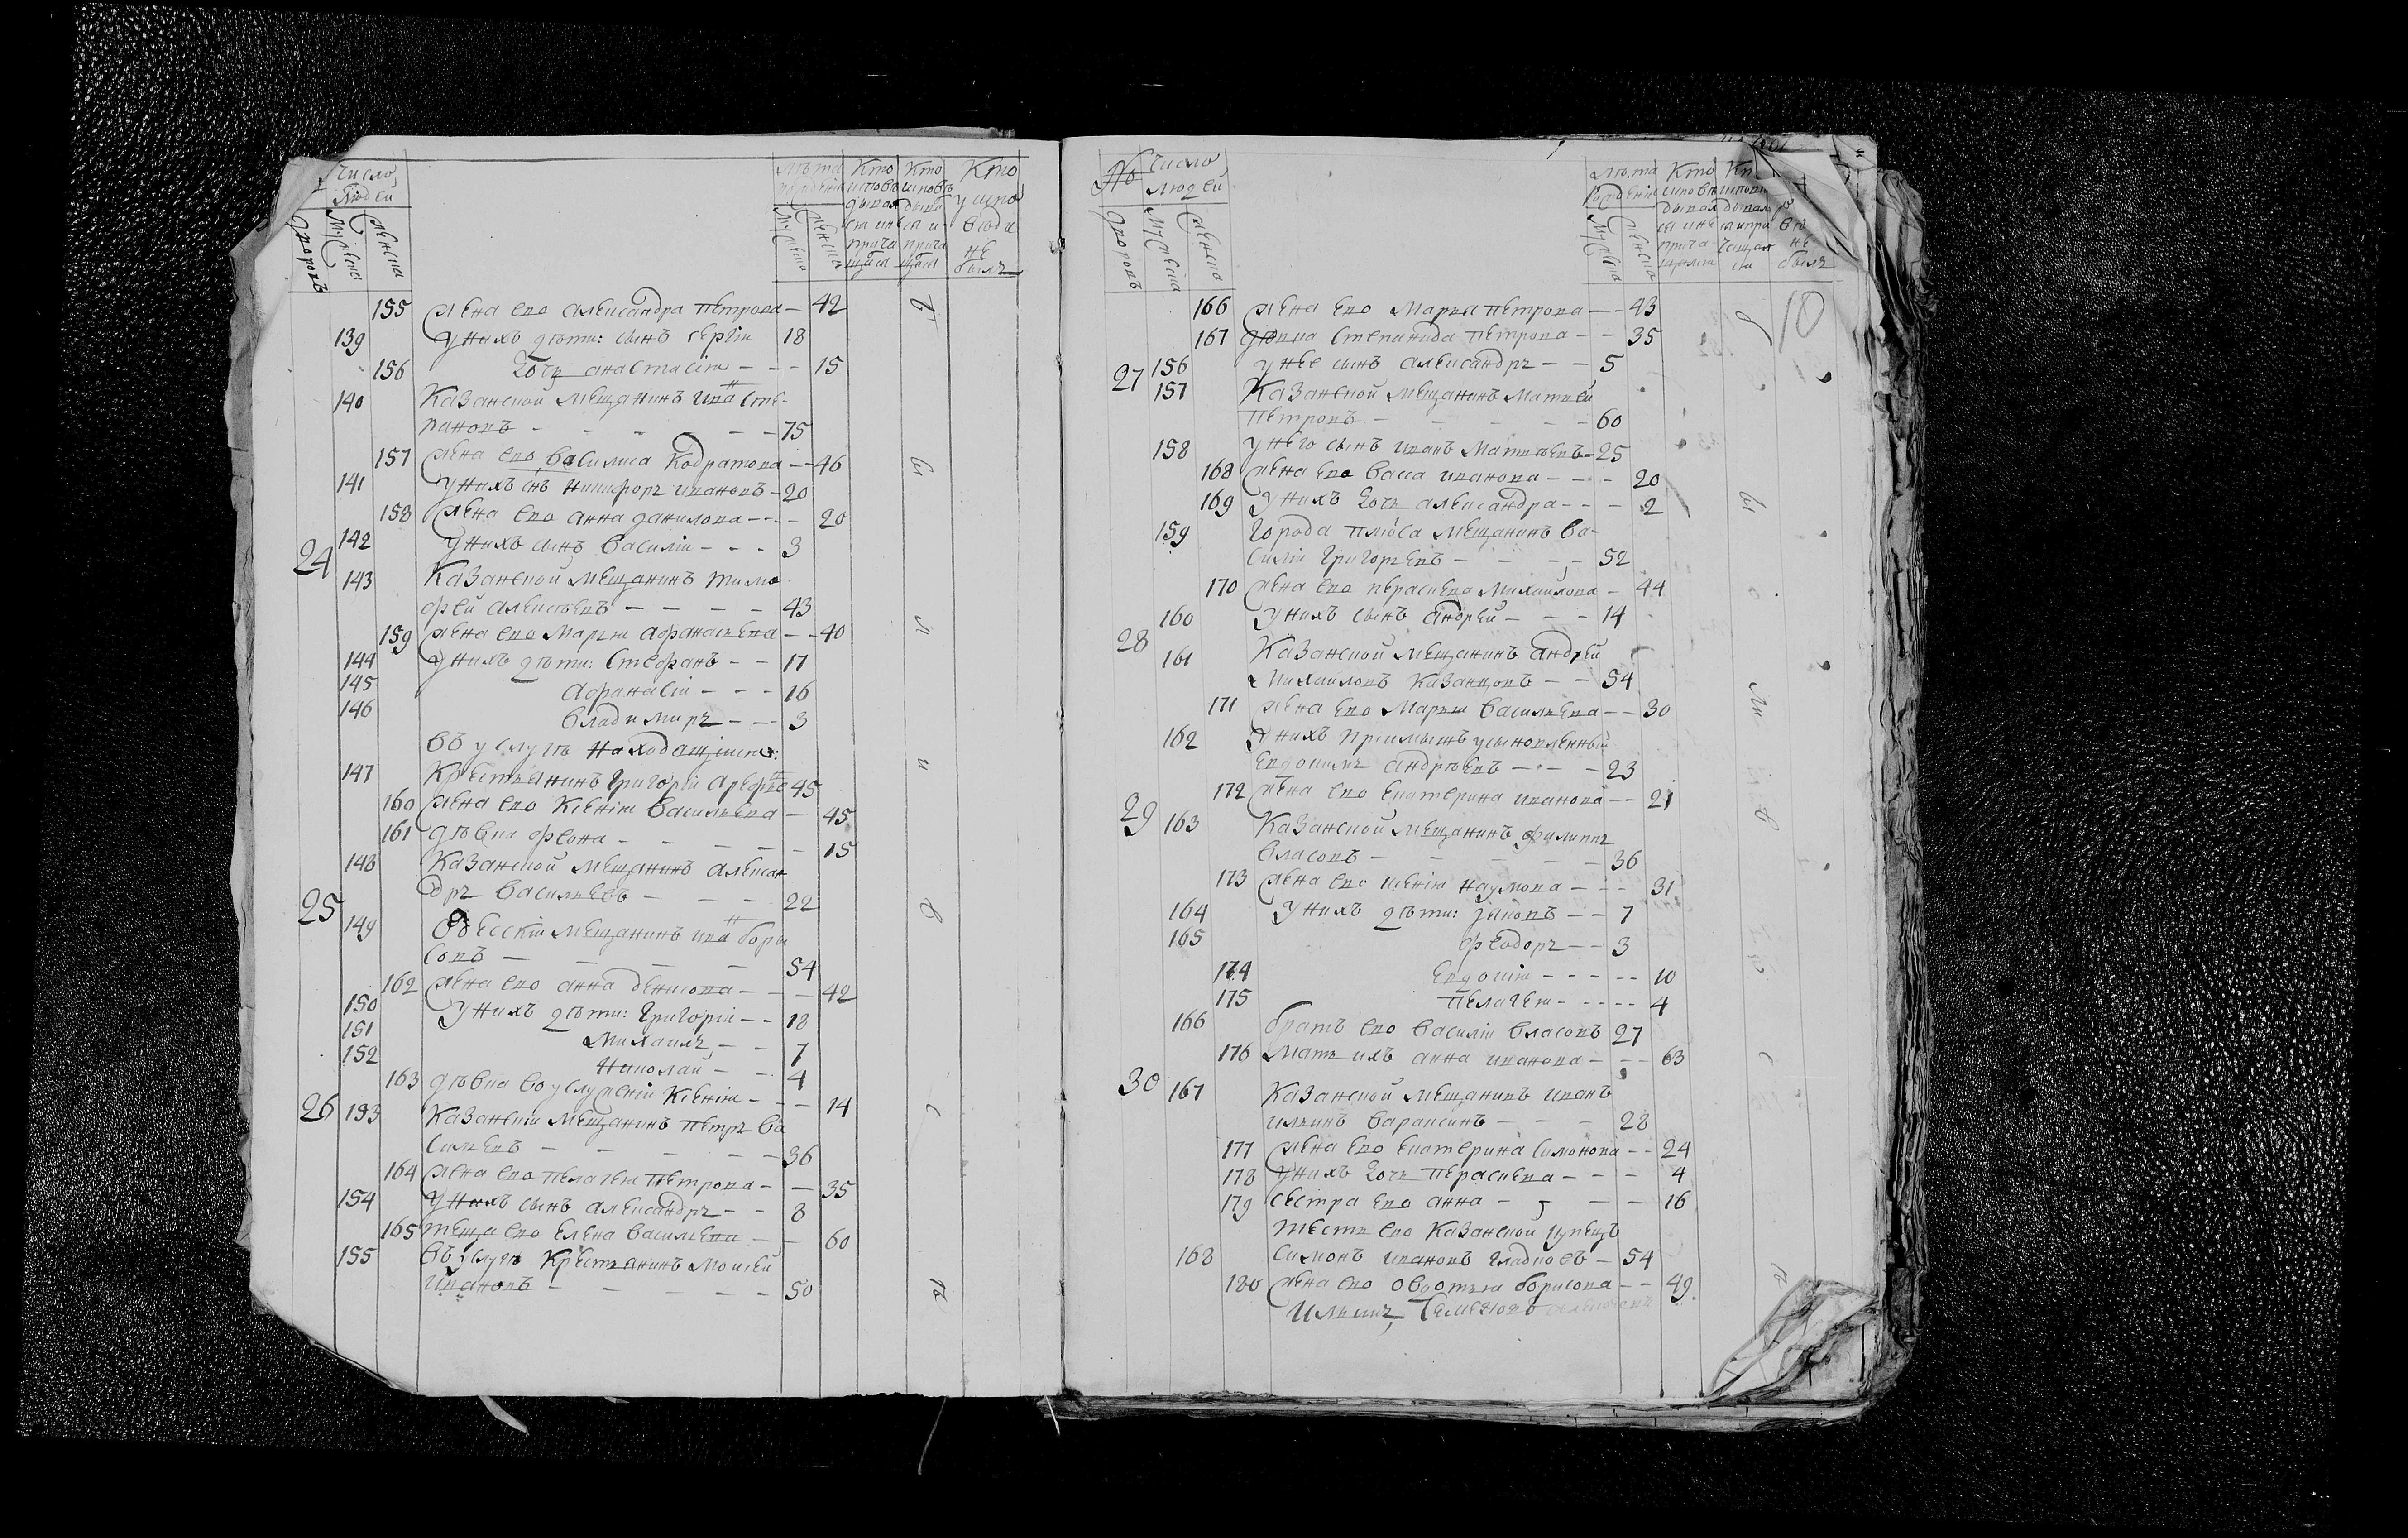 Число Людей
Дворовъ Мужеска Женска
Лѣта рожденія Мужеска Женска
Кто исповѣдывался и не причащался
Кто исповѣдывался и причащался
Кто у исповѣди не былъ
155 Жена ево Александра Петрова — 42
139 У нихъ дѣти: сынъ Сергiй 18
156 Дочь Анастасiя — 15
140 Казанской Мещанинъ Ива Сте-
пановъ — 75
157 Жена ево Василиса Кодратова — 46
141 У нихъ снъ Никифоръ Ивановъ — 20
158 Жена ево Анна Данилова — 20
142 У нихъ сынъ Василiй — 3
24 143 Казанской Мещанинъ Тимо-
фей Алексѣевъ — 43
159 Жена ево Марья Афанасьева — 40
144 У нихъ дѣти: Стефанъ — 17
145 Афанасiй — 16
146 Владимиръ — 3
Въ услугѣ находящiися:
147 Крестьянинъ Григорiй Арефье 45
160 Жена ево Ксенiя Васильева — 45
161 Дѣвка Феона — 15
148 Казанской Мещанинъ Алексан
дръ Васильевъ — 22
25 149 Одесскiй Мещанинъ Ива Бори
совъ — 54
162 Жена ево Анна Денисова — 42
150 У нихъ дѣти: Григорiй — 18
151 Михаилъ — 7
152 Николай — 4
163 Дѣвка во услуженiи Ксенiя — 14
26 153 Казанскiй Мещанинъ Петръ Ва
сильевъ — 36
164 Жена ево Пелагея Петрова — 35
154 У нихъ сынъ Александръ — 8
165 Теща ево Елена Васильева — 60
155 Въ услугѣ Крестьянинъ Моисей
Ивановъ — 50
б
ы
л
и
в
с
ѣ
№ Число Людей
Дворовъ Мужеска Женска
Лѣта рожденiя Мужеска Женска
Кто исповѣдывался и не причащался
10
166 Жена ево Марья Петрова — 43
167 Дѣвка Степанида Петрова — 35
156 У нее сынъ Александръ — 5
27 157 Казанской Мещанинъ Матвей
Петровъ — 60
158 У него сынъ Иванъ Матвѣевъ — 25
168 Жена ево Васса Иванова — 20
169 У нихъ дочь Александра — 2
159 Города Плiоса Мещанинъ Ва-
силiй Григорьевъ — 52
170 Жена ево Перасковa Михайлова — 44
160 У нихъ сынъ Андрей — 14
28 161 Казанской Мещанинъ Андрей
Михаиловъ Казанцовъ — 54
171 Жена ево Марья Васильева — 30
162 У нихъ прiимышъ усыновленный
Евдокимъ Андрѣевъ — 23
172 Жена ево Екатерина Иванова — 21
29 163 Казанской Мещанинъ Филиппъ
Власовъ — 36
173 Жена ево Ксенiя Наумова — 31
164 У нихъ дѣти: Iяковъ — 7
165 Феодоръ — 3
174 Евдокiя — 10
175 Пелагея — 4
166 Братъ ево Василiй Власовъ 27
176 Мать ихъ Анна Иванова — 63
30 167 Казанской Мещанинъ Иванъ
Ильинъ Вараксинъ — 28
177 Жена ево Екатерина Симонова — 24
178 У нихъ дочь Пераскева — 4
179 Сестра ево Анна — 16
Тесть ево Казанской Купецъ
168 Симонъ Ивановъ Гладковъ — 54
180 Жена ево Ѳедотья Борисова — 49
б
ы
ли
в
с
ѣ